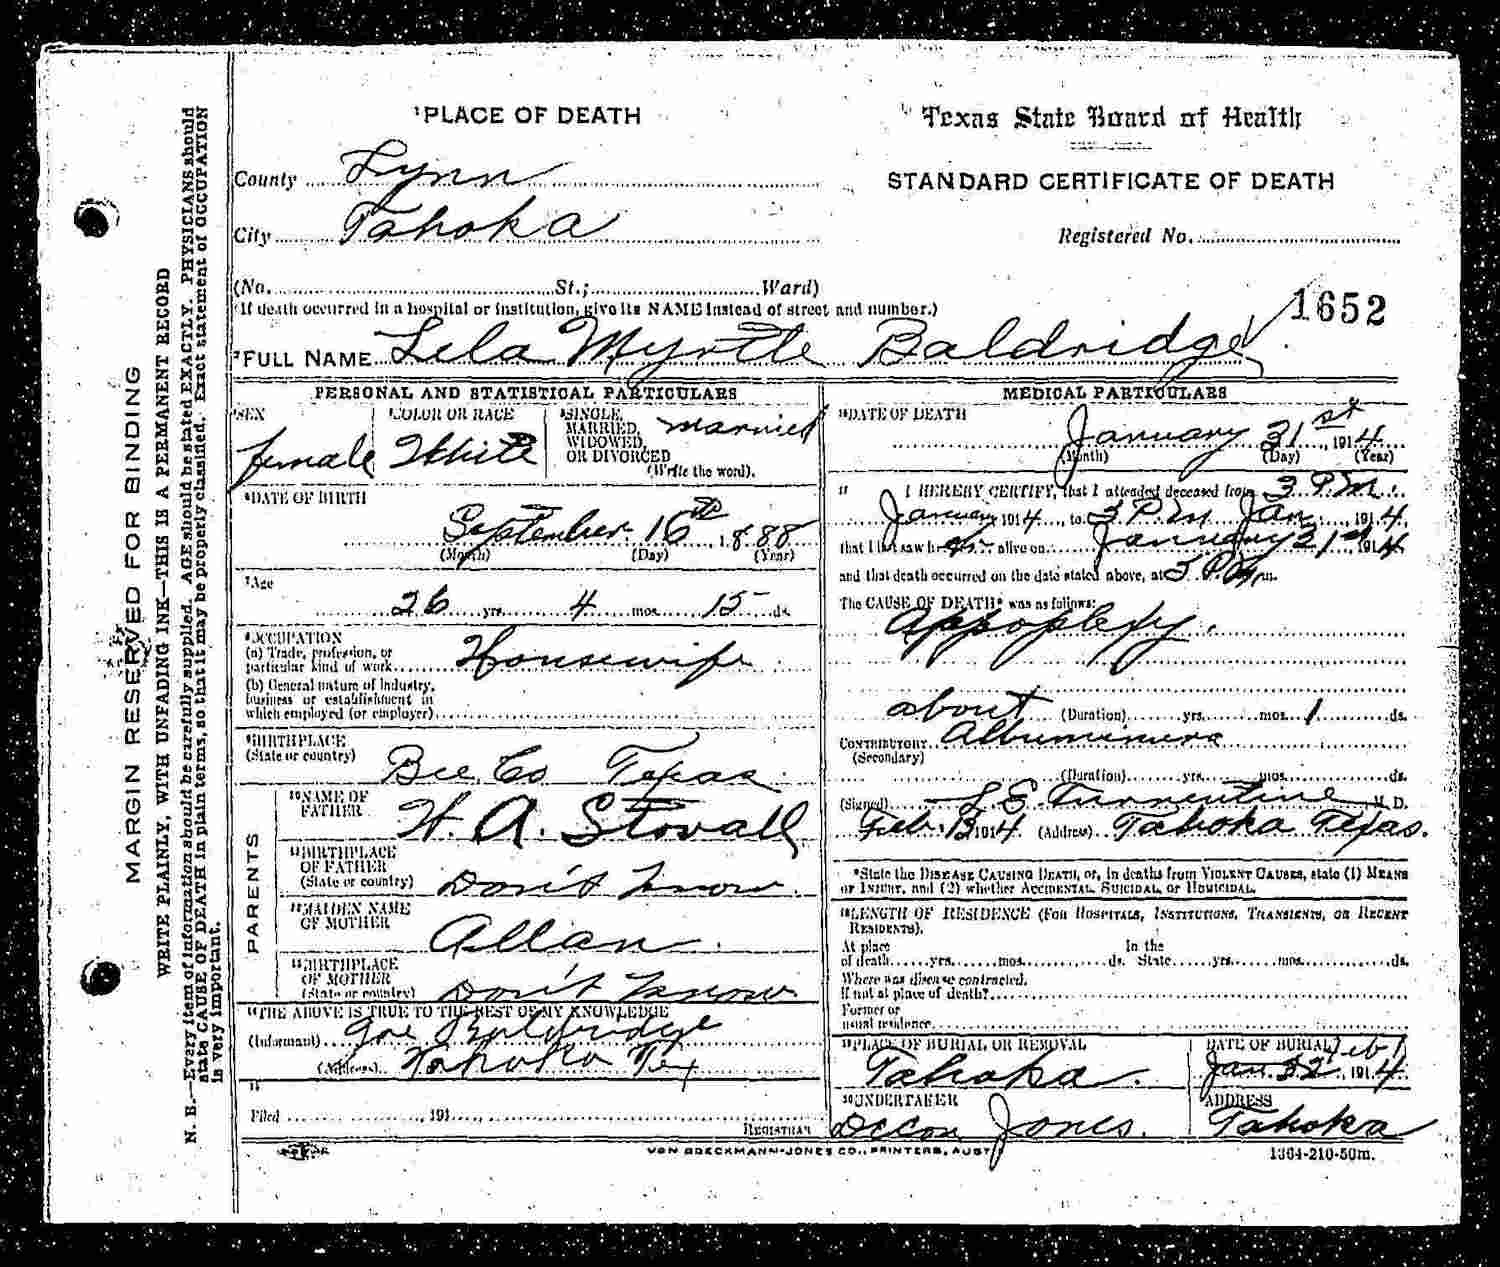 ¹PLACE OF DEATH
County Lynn
City Tahoka
(No. St.; Ward)
(If death occurred in a hospital or institution, give its NAME instead of street and number.)
Texas State Board of Health
STANDARD CERTIFICATE OF DEATH
Registered No.
1652
²FULL NAME Lela Myrtle Baldridge
PERSONAL AND STATISTICAL PARTICULARS
SEX
female
COLOR OR RACE
White
SINGLE, MARRIED, WIDOWED, OR DIVORCED married
(Write the word).
⁶DATE OF BIRTH
September 16th, 1888
(Month) (Day) (Year)
⁷Age
26 yrs. 4 mos. 15 ds.
⁸OCCUPATION
(a) Trade, profession, or
particular kind of work Housewife
(b) General nature of industry,
business or establishment in
which employed (or employer)
⁹BIRTHPLACE
(State or country) Bee Co Texas
PARENTS
¹⁰NAME OF
FATHER W. A. Stovall
¹¹BIRTHPLACE
OF FATHER
(State or country) Don't Know
¹²MAIDEN NAME
OF MOTHER Allan
¹³BIRTHPLACE
OF MOTHER
(State or country) Don't Know
¹⁴THE ABOVE IS TRUE TO THE BEST OF MY KNOWLEDGE
(Informant) Joe Baldridge
(Address) Tahoka Tex
Filed , 191
REGISTRAR
MEDICAL PARTICULARS
DATE OF DEATH
January 31st, 1914
(Month) (Day) (Year)
I HEREBY CERTIFY, that I attended deceased from 3 P.M.
January 1914, to 3 P.M. Jan. 1914,
that I last saw her alive on January 31st 1914
and that death occurred on the date stated above, at 3 P.M.
The CAUSE OF DEATH* was as follows:
Appoplexy.
about (Duration) yrs. mos. 1 ds.
CONTRIBUTORY
(Secondary)
(Duration) yrs. mos. ds.
(Signed) L. E. Turrentine M. D.
Feb. 1914 (Address) Tahoka Texas.
*State the DISEASE CAUSING DEATH, or, in deaths from VIOLENT CAUSES, state (1) MEANS
OF INJURY, and (2) whether ACCIDENTAL, SUICIDAL, or HOMICIDAL.
LENGTH OF RESIDENCE (FOR HOSPITALS, INSTITUTIONS, TRANSIENTS, OR RECENT
RESIDENTS).
At place In the
of death yrs. mos. ds. State yrs. mos. ds.
Where was disease contracted,
If not at place of death?
Former or
usual residence
PLACE OF BURIAL OR REMOVAL
Tahoka.
DATE OF BURIAL Feb 1
Jan. 32 1914
²⁰UNDERTAKER
Jones.
ADDRESS
Tahoka
VON BOECKMANN-JONES CO., PRINTERS, AUSTIN
1364-210-50m.
MARGIN RESERVED FOR BINDING
WRITE PLAINLY, WITH UNFADING INK—THIS IS A PERMANENT RECORD
N. B.—Every item of information should be carefully supplied. AGE should be stated EXACTLY. PHYSICIANS should
state CAUSE OF DEATH in plain terms, so that it may be properly classified. Exact statement of OCCUPATION
is very important.